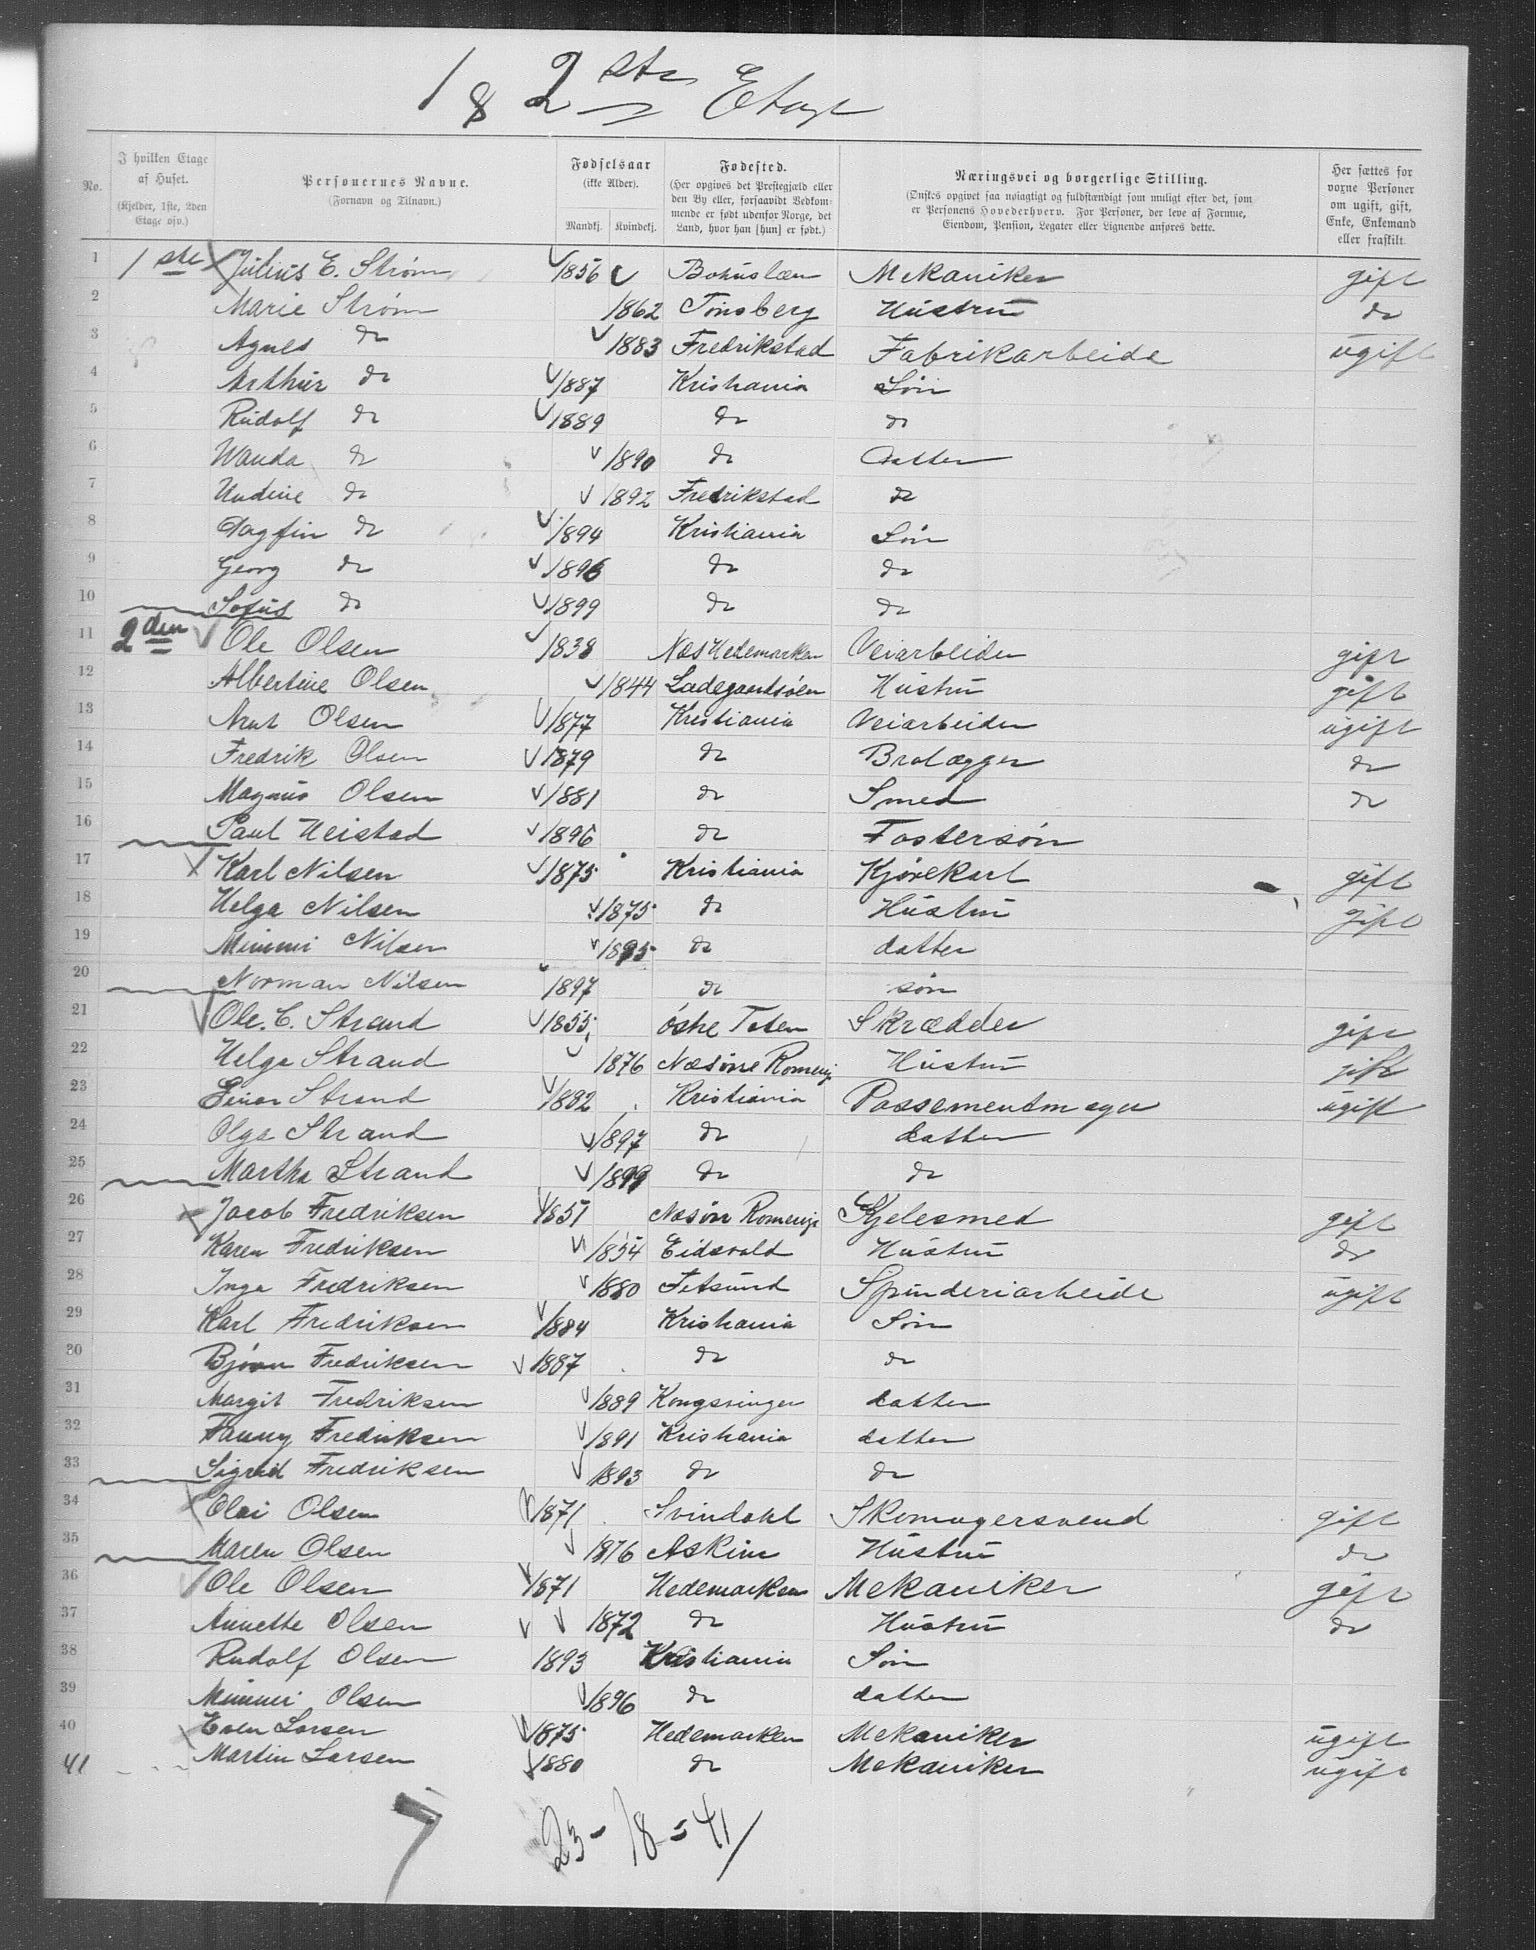 1 & 2 ste Etage
No.
I hvilken Etage af Huset. (Kjelder, 1ste, 2den Etage osv.)
Personernes Navne. (Fornavn og Tilnavn.)
Fødselsaar (ikke Alder). Mandkj. Kvindekj.
Fødested. (Her opgives det Prestegjæld eller den By eller, forsaavidt Vedkommende er født udenfor Norge, det Land, hvor han [hun] er født.)
Næringsvei og borgerlige Stilling. (Ønskes opgivet saa nøiagtigt og fuldstændigt som muligt efter det, som er Personens Hovederhverv. For Personer, der leve af Formue, Eiendom, Pension, Legater eller Lignende anføres dette.
Her sættes for voxne Personer om ugift, gift, Enke, Enkemand eller fraskilt
1 1 ste Julius E. Strøm 1856 Bohuslæn Mekaniker gift
2 Marie Strøm 1862 Tønsberg Hustru do
3 Agnes do 1883 Fredrikstad Fabrikarbeide ugift
4 Arthur do 1887 Kristiania Søn
5 Rudolf do 1889 do do
6 Wanda do 1890 do Datter
7 Undine do 1892 Fredrikstad do
8 Dagfin do 1894 Kristiania Søn
9 Georg do 1896 do do
10 Sofus do 1899 do do
11 2 den Ole Olsen 1838 Næs Hedemarken Veiarbeider gift
12 Albertine Olsen 1844 Ladegaardsøen Hustru gift
13 Olsen 1877 Kristiania Veiarbeider ugift
14 Fredrik Olsen 1879 do Brolægger do
15 Magnus Olsen 1881 do Smed do
16 Paul Heistad 1896 do Fostersøn
17 Karl Nilsen 1875 Kristiania Kjørekarl gift
18 Helga Nilsen 1875 do Hustru gift
19 Mimmi Nilsen 1895 do datter
20 Norman Nilsen 1897 do søn
21 Ole. C. Strand 1855 østre Toten Skrædder gift
22 Helga Strand 1876 Næsøne Romerig Hustru gift
23 Einar Strand 1882 Kristiania Possementmager ugift
24 Olga Strand 1897 do datter
25 Martha Strand 1899 do do
26 Jacob Fredriksen 1851 Næsøn Romerige Kjelesmed gift
27 Karen Fredriksen 1854 Eidsvold Hustru do
28 Inga Fredriksen 1880 Fetsund Spinderiarbeide ugift
29 Karl Fredriksen 1884 Kristiania Søn
30 Bjørn Fredriksen 1887 do do
31 Margit Fredriksen 1889 Kongsvinger datter
32 Fanny Fredriksen 1891 Kristiania datter
33 Sigrid Fredriksen 1893 do do
34 Olai Olsen 1871 Svindahl Skomagersvend gift
35 Maren Olsen 1876 Askim Hustru do
36 Ole Olsen 1871 Hedemarken Mekaniker gift
37 Annette Olsen 1872 do Hustru do
38 Rudolf Olsen 1893 Kristiania Søn
39 Mimmi Olsen 1896 do datter
40 Even Larsen 1875 Hedemarken Mekaniker ugift
41 Martin Larsen 1880 do Mekaniker ugift
7 23 - 18 = 41